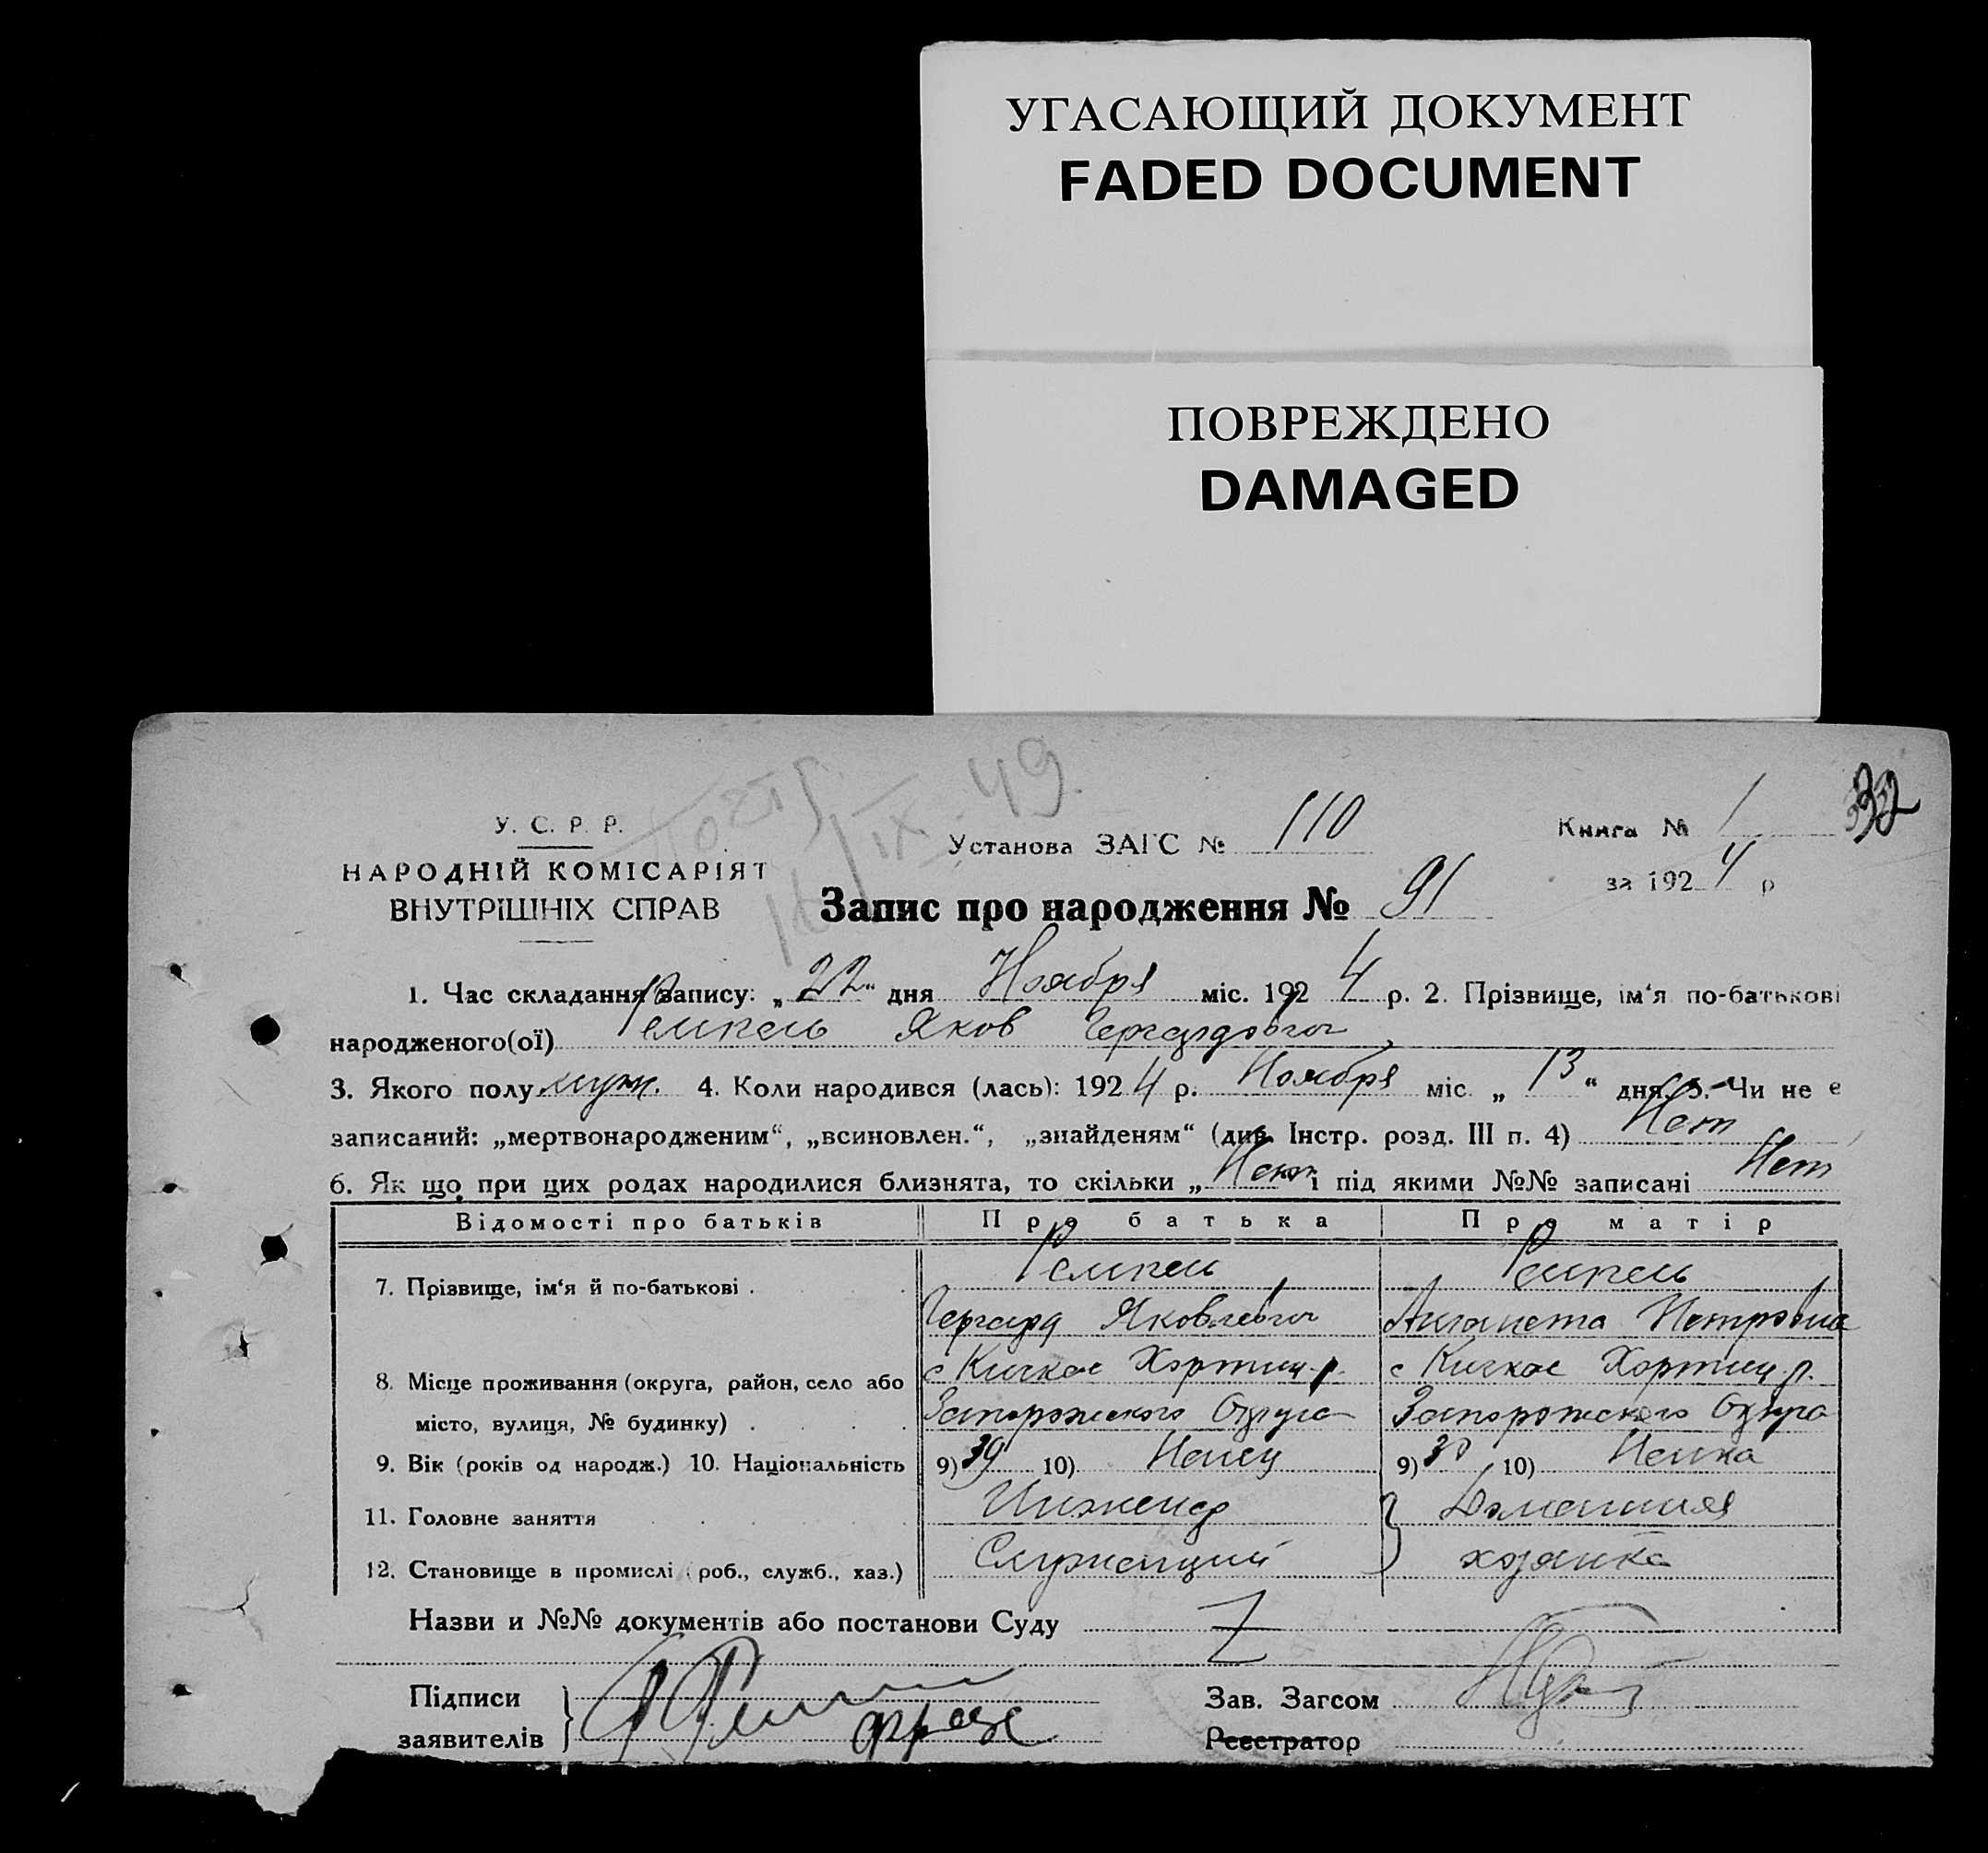 УГАСАЮЩИЙ ДОКУМЕНТ
FADED DOCUMENT
ПОВРЕЖДЕНО
DAMAGED
32
IX 49.
У. С. Р. Р.
НАРОДНІЙ КОМІСАРІЯТ
ВНУТРІШНІХ СПРАВ
Установа ЗАГС № 110
Книга № 1
за 1924 р
Запис про народження № 91
1. Час складання запису: „22“ дня Ноября міс. 1924 р. 2. Прізвище, ім‘я по-батькові
народженого(ої) Ремпель Яков Гергардович
3. Якого полу муж. 4. Коли народився (лась): 1924 р. Ноября міс. „13“ дня. 5. Чи не є
записаний: „мертвонародженим“, „всиновлен.“, „знайденям“ (див. Інстр. розд. III п. 4) Нет
6. Як що при цих родах народилися близнята, то скільки „Нет і під якими №№ записані Нет
Відомості про батьків Про батька Про матір
7. Прізвище, ім‘я й по-батькові . Ремпель Ремпель
Гергард Яковлевич Аганета Петровна
8. Місце проживання (округа, район, село або с Кичкас Хортиц. р. с Кичкас Хортиц. р.
місто, вулиця, № будинку) . Запорожского Округа Запорожского Округа
9. Вік (років од народж.) 10. Національність 9) 39 10) Немец 9) 30 10) Немка
11. Головне заняття Инженер Домашняя
12. Становище в промислі (роб., служб., хаз.) Служащий хозяйка
Назви и №№ документів або постанови Суду
Підписи
заявителів
Зав. Загсом
Реєстратор